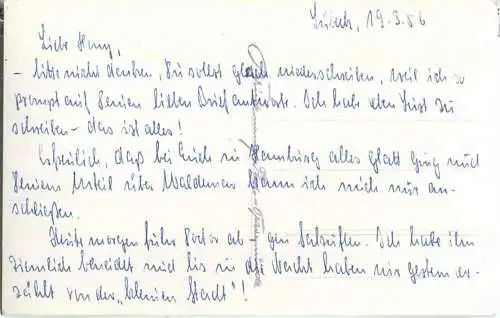 Lübeck, 19.3.56
Liebe Heny,
– bitte nicht denken, Du sollst gleich niederschreiben, weil ich so
prompt auf Deinen lieben Brief antworte. Ich habe den Lust zu
schreiben – das ist alles!
Erfreulich, daß bei Euch in Hamburg alles glatt ging und
Deinem Urteil über Waldemar kann ich mich nur an-
schließen.
Heute morgen fuhr ab – gen. Ich habe ihn
ziemlich beneidet und bis in die Nacht haben wir gestern er-
zählt von der „kleinen Stadt"!